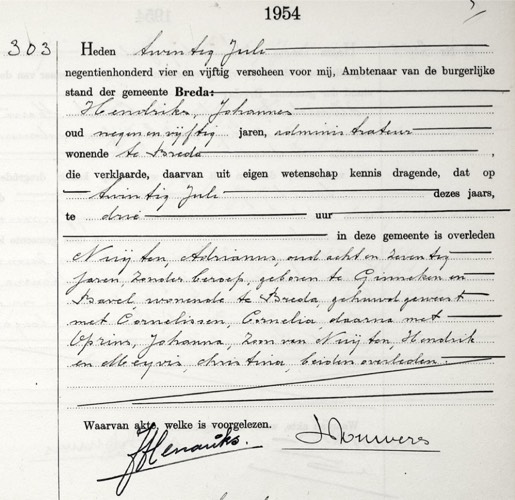 1954
303 Heden twintig Juli
negentienhonderd vier en vijftig verscheen voor mij, Ambtenaar van de burgerlijke
stand der gemeente Breda:
Hendriks, Johannes
oud negenenvijftig jaren, administrateur
wonende te Breda ,
die verklaarde, daarvan uit eigen wetenschap kennis dragende, dat op
twintig Juli dezes jaars,
te drie uur
in deze gemeente is overleden
Nuijten, Adrianus, oud acht en zeventig
jaren, zonder beroep, geboren te Ginneken en
Bavel wonende te Breda, gehuwd geweest
met Cornelissen, Cornelia, daarna met
Oprins, Johanna, zoon van Nuijten, Hendrik
en Meyvis Christina, beiden overleden.
Waarvan akte, welke is voorgelezen.
JHendriks.